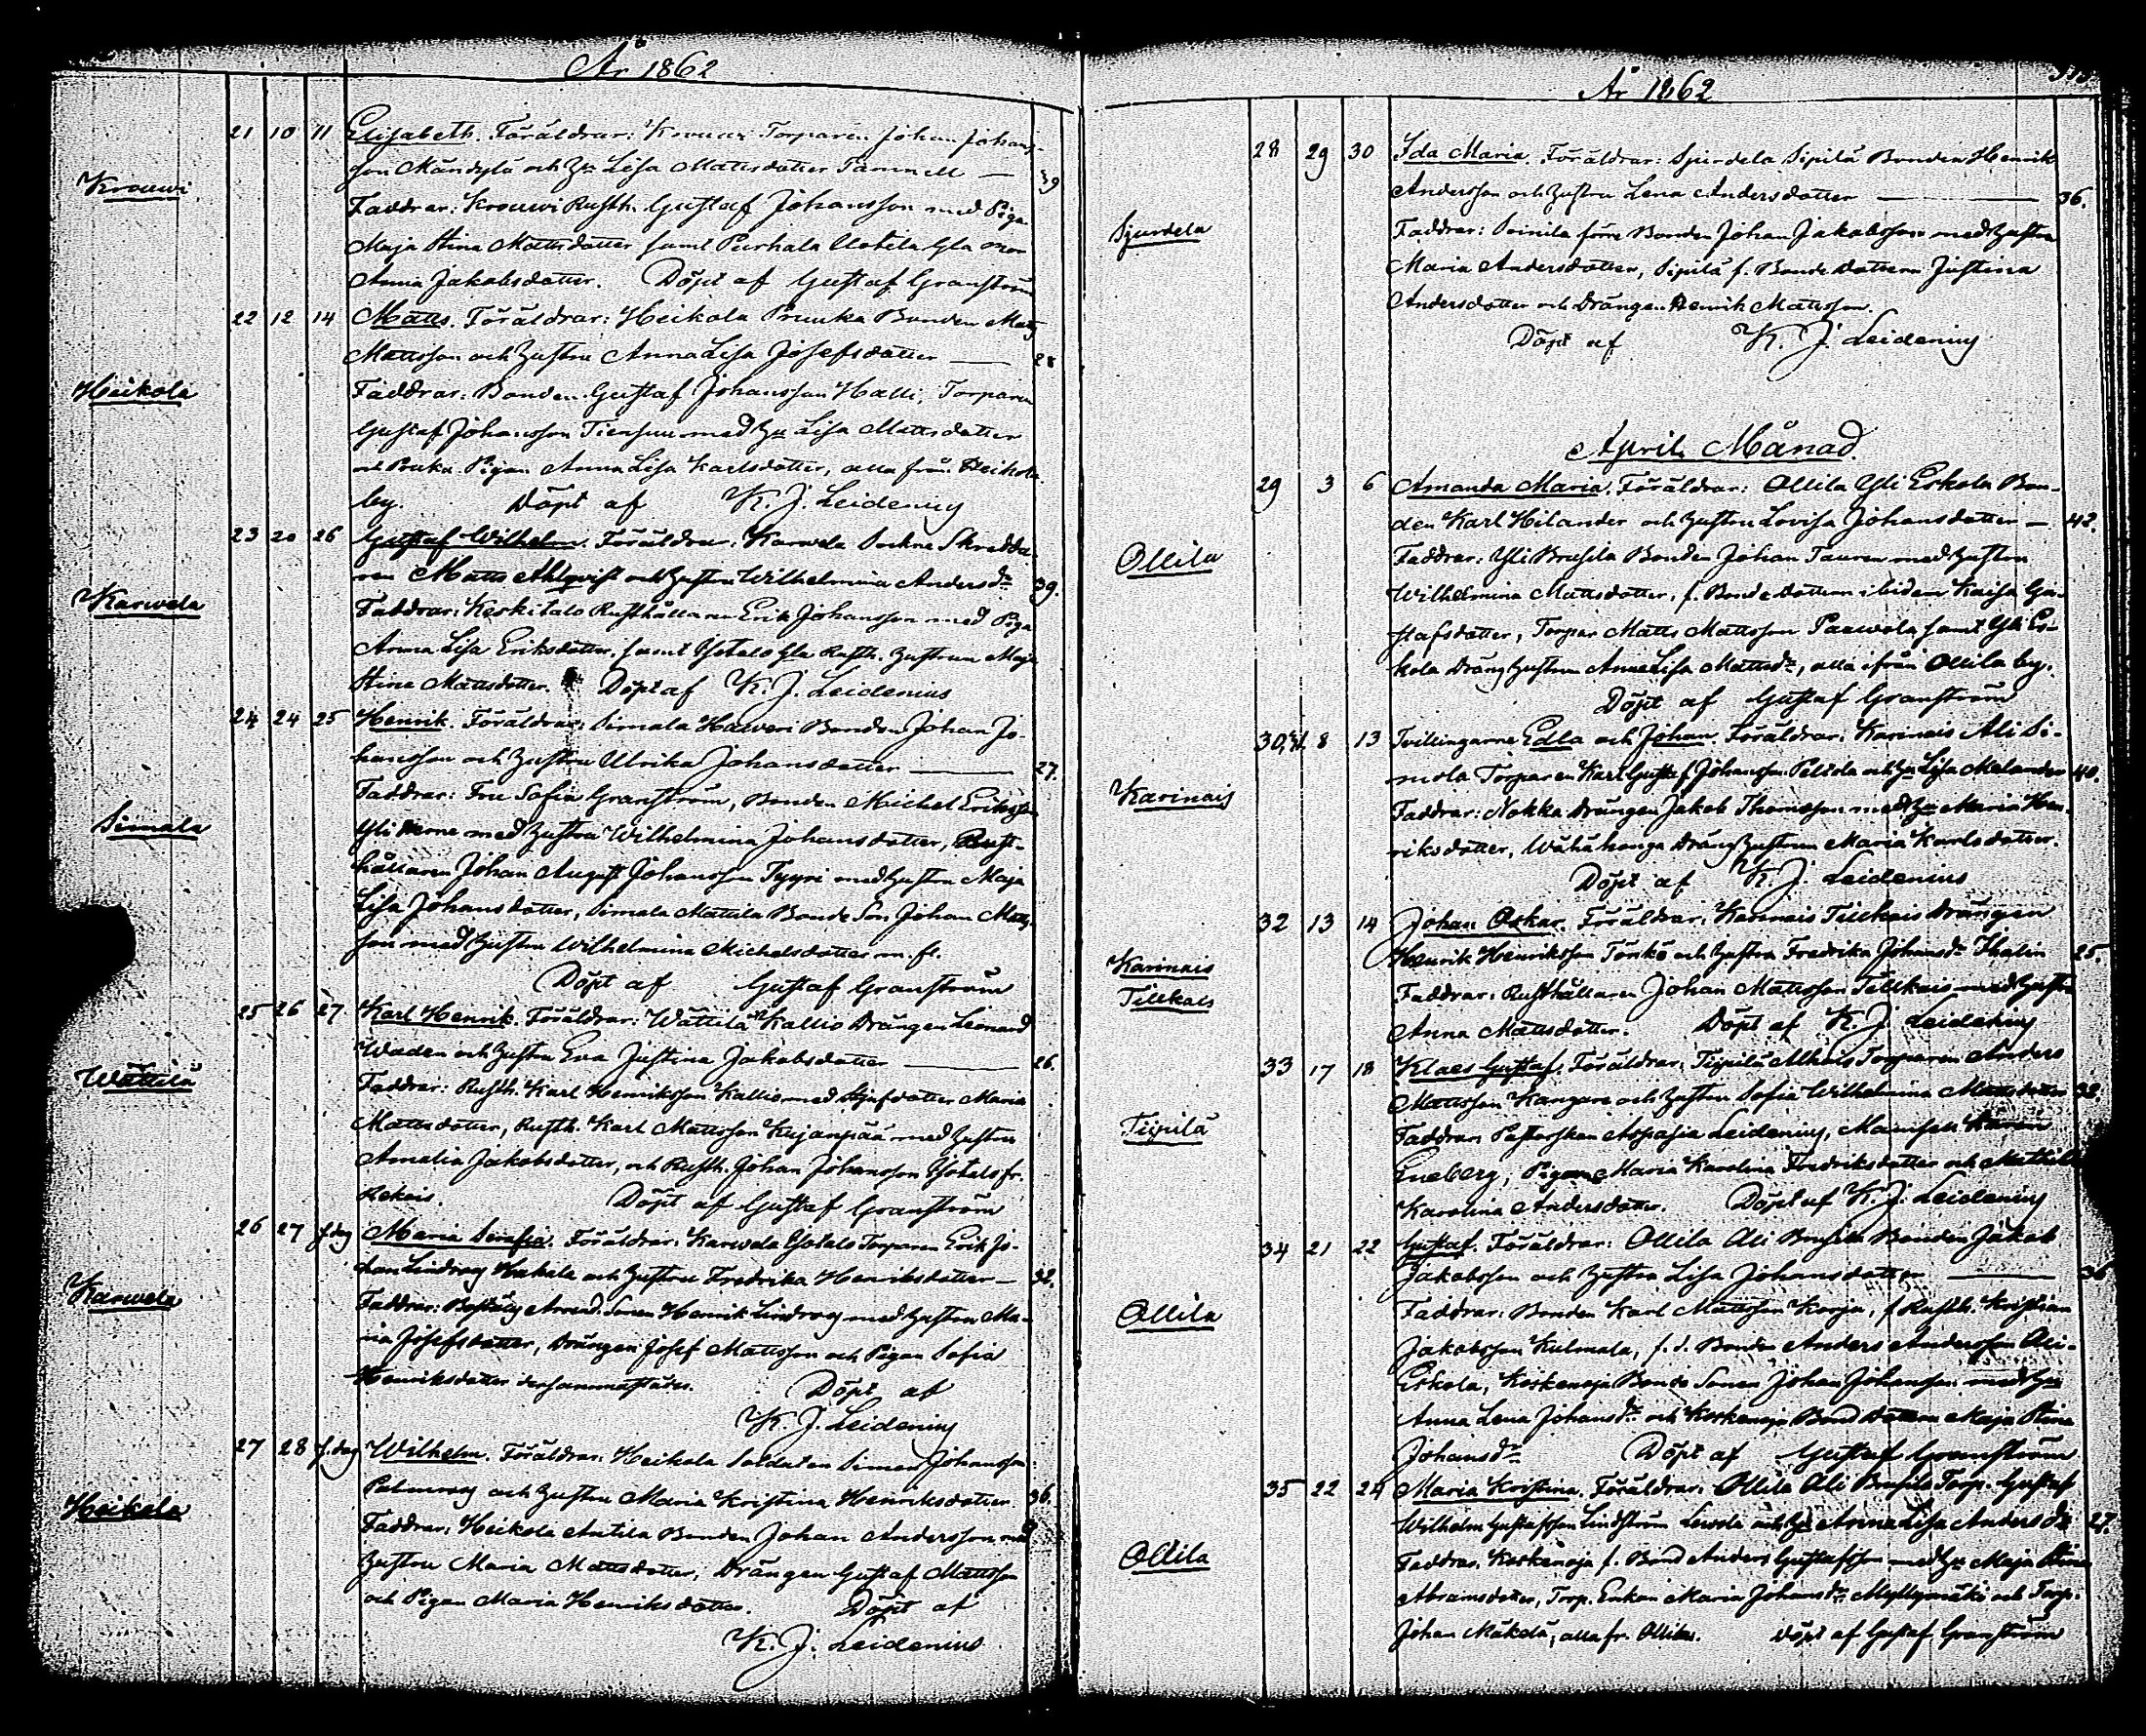 År 1862
21 10 11 Elisabeth. Föräldrar: Krouwi Torparen Johan Johans-
son Mändylä och Hu Lisa Mattsdotter Tammell — 39
Krouwi
Faddrar: Krouwi Rusth. Gustaf Johansson med Piga
Maja Stina Mattsdotter samt Gla mor
Anna Jakobsdotter. Döpt af Gustaf Granström
22 12 14 Matts. Föräldrar: Heikola Prunka Bonden Matts
Mattsson och hustru Anna Lisa Josefsdotter — 28
Heikola
Faddrar: Bonden Gustaf Johansson Halli, Torparen
Gustaf Johansson Tiensuu med Hu Lisa Mattsdotter
och Pigan Anna Lisa Karlsdotter, alla från Heikola
by. Döpt af K. J. Leidenius
23 20 26 Gustaf Wilhelm. Föräldrar: Karwela Sockne Skredda-
ren Matts Ahlqvist och hustru Wilhelmina Andersdr 39.
Karwela
Faddrar: Keskitalo Rusthållaren Erik Johansson med Piga
Anna Lisa Eriksdotter, samt Ysotalo Gla Rusth. hustrun Maja
Stina Mattsdotter. Döpt af K. J. Leidenius
24 24 25 Henrik. Föräldrar: Simala Haweri Bonden Johan Jo-
hansson och hustru Ulrika Johansdotter — 27.
Simala
Faddrar: Fru Sofia Granström, Bonden Michel Eriksson
Yli Herne med hustru Wilhelmina Johansdotter, Rust-
hållaren Johan August Johansson Tyyri med hustru Maja
Lisa Johansdotter, Simala Mattila Bonde Son Johan Matts-
son med hustru Wilhelmina Michelsdotter m. fl.
Döpt af Gustaf Granström
25 26 27 Karl Henrik. Föräldrar: Wättilä Kallio Drängen Leonard
Waden och hustru Eva Justina Jakobsdotter — 26.
Wättilä
Faddrar: Rusth. Karl Henriksson Kallio med Styfdotter Maria
Mattsdotter, Rusth. Karl Mattsson Kujanpää med hustru
Amalia Jakobsdotter, och Rusth. Johan Johansson Ysotalo fr.
Rekois. Döpt af Gustaf Granström
26 27 s. dag Maria Serafia. Föräldrar: Karwela Ysotalo Torparen Erik Jo-
han Lindroos Hakala och hustru Fredrika Henriksdotter — 32.
Karwela
Faddrar: Arrend. Sonen Henrik Lindroos med hustru Ma-
ria Josefsdotter, Drängen Josef Mattsson och Pigan Sofia
Henriksdotter dersammastädes. Döpt af
K. J. Leidenius
27 28 s. dag Wilhelm. Föräldrar: Heikola Soldaten Simon Johansson
Palmroos och hustru Maria Kristina Henriksdotter 36.
Heikola
Faddrar: Heikola Antila Bonden Johan Andersson med
hustru Maria Mattsdotter, Drängen Gustaf Mattsson
och Pigan Maria Henriksdotter. Döpt af
K. J. Leidenius
År 1862
28 29 30 Ida Maria. Föräldrar: Sjurdela Sipilä Bonden Henrik
Andersson och hustru Lena Andersdotter — 36.
Sjurdela
Faddrar: Soinila förre Bonden Johan Jakobsson med hustru
Maria Andersdotter, Sipilä f. Bonde dottern Justina
Andersdotter och Drängen Henrik Mattsson.
Döpt af K. J. Leidenius
April Månad
29 3 6 Amanda Maria. Föräldrar: Ollila Yli Eskola Bon-
den Karl Hilander och hustru Lovisa Johansdotter — 42.
Ollila
Faddrar: Yli Brusila Bonden Johan Tauren med hustru
Wilhelmina Mattsdotter, f. Bonde dottern ibidem Kaisa Gu-
stafsdotter, Torpar Matts Mattsson Paawola samt Yli Es-
kola Dräng hustrun Anna Lisa Mattsdr, alla ifrån Ollila by.
Döpt af Gustaf Granström
30,31 8 13 Tvillingarne Edla och Johan. Föräldrar: Karinais Ali Si-
mola Torparen Karl Gustaf Johansson Peltola och Hu Lisa Melander 40.
Karinais
Faddrar: Nokka Drängen Jakob Thomasson med Hu Maria Hen-
riksdotter, Wähähonga Dräng hustrun Maria Karlsdotter.
Döpt af K. J. Leidenius
32 13 14 Johan Oskar. Föräldrar: Karinais Tillkais Drängen
Henrik Henriksson Törskö och hustru Fredrika Johansdr Thalin 25.
Karinais
Tillkais
Faddrar: Rusthållaren Johan Mattsson Tillkais med hustru
Anna Mattsdotter. Döpt af K. J. Leidenius
33 17 18 Klaes Gustaf. Föräldrar: Tiipilä Alhais Torparen Anders
Mattsson Kangare och hustru Sofia Wilhelmina Mattsdotter 32.
Tiipilä
Faddrar: Pastorskan Aspasia Leidenius, Mamsell Karin
Eneberg, Pigan Maria Karolina Fredriksdotter och Mathilda
Karolina Andersdotter. Döpt af K. J. Leidenius
34 21 22 Gustaf. Föräldrar: Ollila Ali Brusila Bonden Jakob
Jakobsson och hustru Lisa Johansdotter — 36
Ollila
Faddrar: Bonden Karl Mattsson Korja, f. Rusth. Kristian
Jakobsson Kulmala, f. d. Bonden Anders Andersson Ali-
Eskola, Koskenoja Bonde Sonen Johan Johansson med Hu
Anna Lena Johansdr och Koskenoja Bond dottern Maja Stina
Johansdr Döpt af Gustaf Granström
35 22 24 Maria Kristina. Föräldrar: Ollila Ali Brusila Torp. Gustaf
Wilhelm Gustafsson Lindström och Hu Anna Lisa Andersdr 27.
Ollila
Faddrar: Koskenoja f. Bond Anders Gustafsson med Hu Maja Stina
Abramsdotter, Torp. Enkan Maria Johansdr Myllymäki och Torp.
Johan Mäkelä, alla fr. Ollila. Döpt af Gustaf Granström